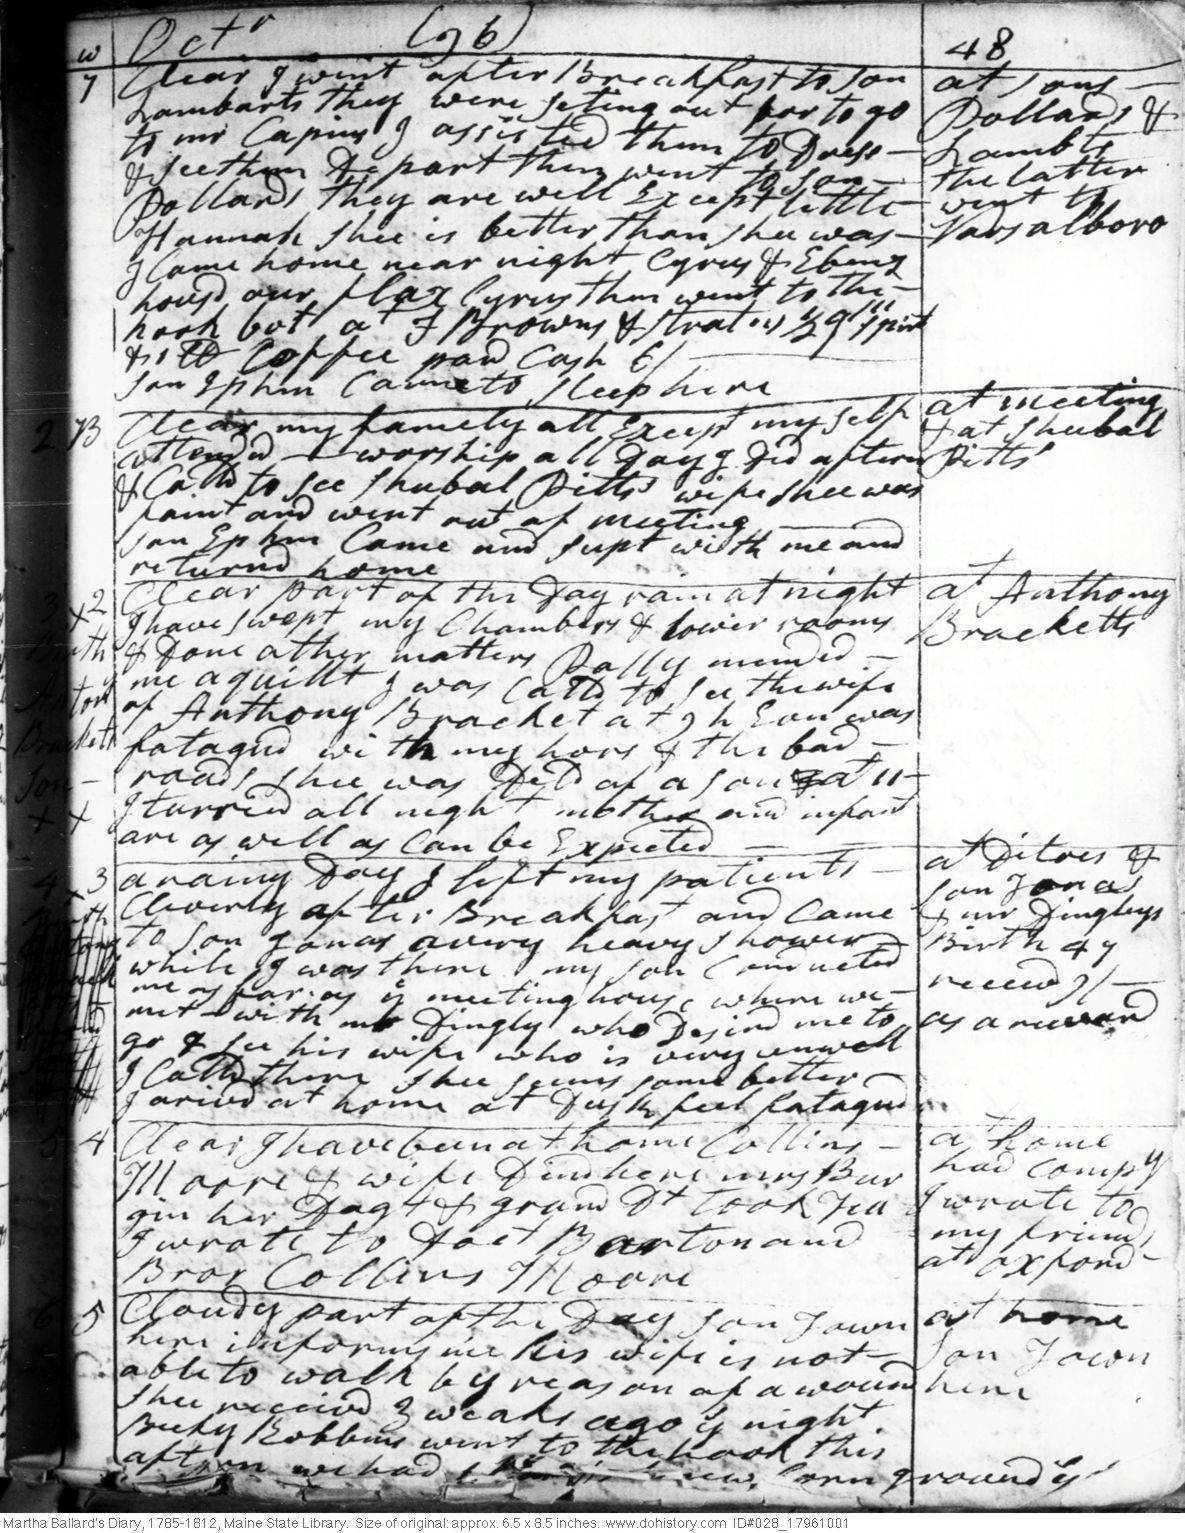 Octr (96) 48
w
7 Clear I went after Breakfast to son
Lambarts they were seting out for to go
to mr Capins I assisted them to Dress
& see them Depart then went to son
Pollards they are well Except little
Hannah shee is better than shee was
I Came home near night Cyrus & Ebenz
housd our flax Cyrus then went to the
hook bot at J Browns & Stratons
& 1 lb Coffee paid Cash 6/
son Ephm Came to sleep here
at sons
Pollards &
Lambts
the latter
went to
Varsalboro
2 B Clear my famely all Except my self
attended worship all Day I did aftern
& Calld to see Shubal Pitts' wife shee was
faint and went out of meeting
son Ephm Came and supt with me and
returnd home
at meeting
& at Shubal
Pitts'
3 x 2 Clear part of the Day rain at night
I have swept my Chambers & lower rooms
& Done other matters Dolly mended
me a quillt I was Calld to see the wife
of Anthony Bracket at 7 h Evn was
fatagud with my hors & the bad
roads shee was Deld of a son at 11
I tarried all night mother and infant
are as well as Can be Expected
Birth
Antony
Brackets
son
x x
at Anthony
Bracketts
4 x 3 a rainy Day I left my patients
Cleverly after Breakfast and Came
to son Jonas a very heavy shower
while I was there my son Conducted
me as far as ye meeting house where we
met with mr Dingly who Desird me to
go & see his wife who is very unwell
I Calld there shee seems some better
I arivd at home at Dusk feel fatagud
at Ditoes &
son Jonas
& mr Dingleys
Birth 47
receivd
as a reward
5 4 Clear I have been at home Collins
Moore & wife Dind here mrs Bur
gin her Dagt & grand Dt took Tea
I wrote to Doct Barton and
Bror Collins Moore
at home
had Compy
I wrote to
my friends
at oxford
6 5 Cloudy part of the Day son Town
here informs me his wife is not
able to walk by reason of a wound
shee received 3 weaks ago ys night
Becky Robbins went to the hook this
aftern we had new Corn ground
at home
son Town
here
Martha Ballard's Diary, 1785-1812, Maine State Library. Size of original: approx. 6.5 x 8.5 inches. www.dohistory.com ID#028_17961001